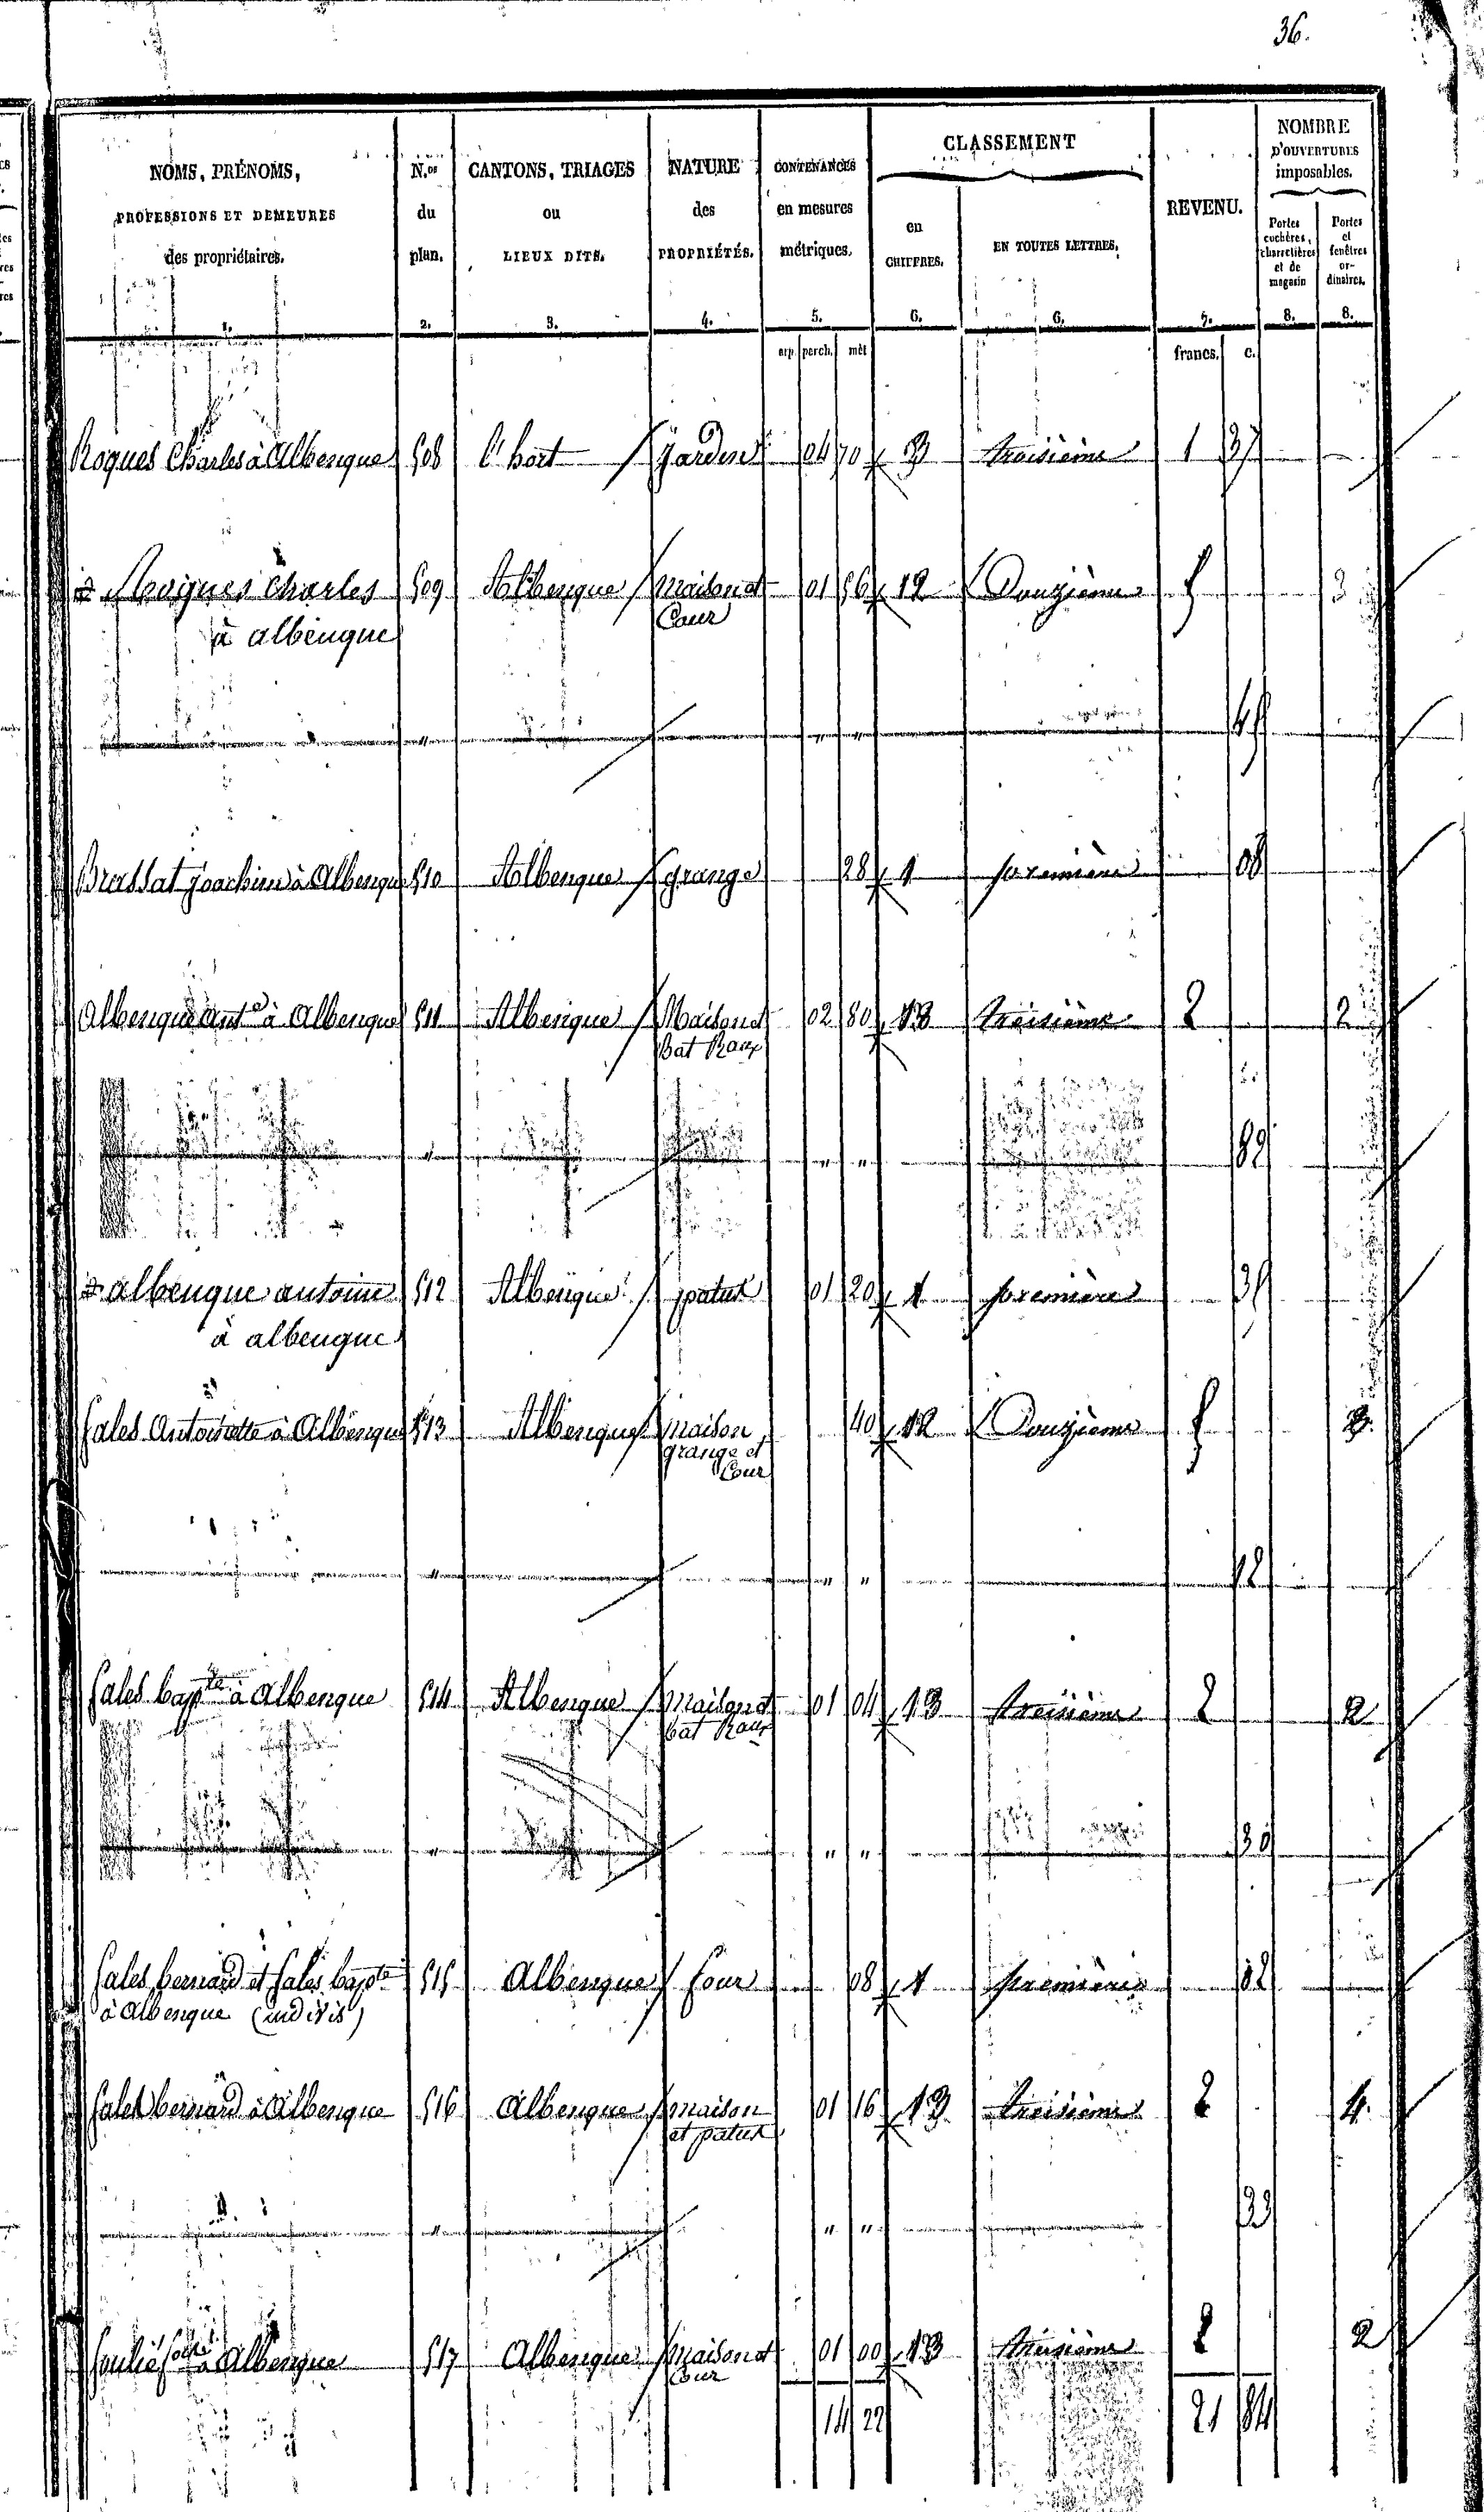 36.
NOMS, PRÉNOMS, PROFESSIONS ET DEMEURES des propriétaires. 1.
N.os du plan. 2.
CANTONS, TRIAGES ou LIEUX DITS. 3.
NATURE des PROPRIÉTÉS. 4.
CONTENANCES en mesures métriques. 5.
CLASSEMENT
en CHIFFRES. 6.
EN TOUTES LETTRES. 6.
REVENU. 7.
NOMBRE D'OUVERTURES imposables.
Portes cochères, charretières et de magasin 8.
Portes et fenêtres ordinaires. 8.
arp. perch. mèt francs. c.
Roques Charles à Albenque 508 l'hort jardin 04 70 3 troisième 1 37
Roques Charles 509 Albenque maison et 01 56 12 Douzième 5 3
à albenque Cour
" " " 45
Brassat Joachim à Albenque 510 Albenque grange 28 1 première 08
Albenque Ant.e à Albenque 511 Albenque Maison et 02 80 13 treisième 2 2
Bat Raux
" " " 82
albenque antoine 512 Albenque patus 01 20 1 première 35
à albenque
Sales Antoinette à Albenque 513 Albenque maison 40 12 Douzième 5 2
grange et
Cour
" " " 12
Sales bapte à Albenque 514 Albenque maison et 01 04 13 treisième 2 2
bat Raux
" " " 30
Sales bernard et Sales bapte 515 Albenque four 08 1 première 02
à Albenque (indivis)
Sales bernard à Albenque 516 Albenque maison 01 16 13 treisième 2 4
et patus
" " " 33
Soulié à Albenque 517 Albenque maison et 01 00 13 treisième 2 2
Cour
14 22 21 84